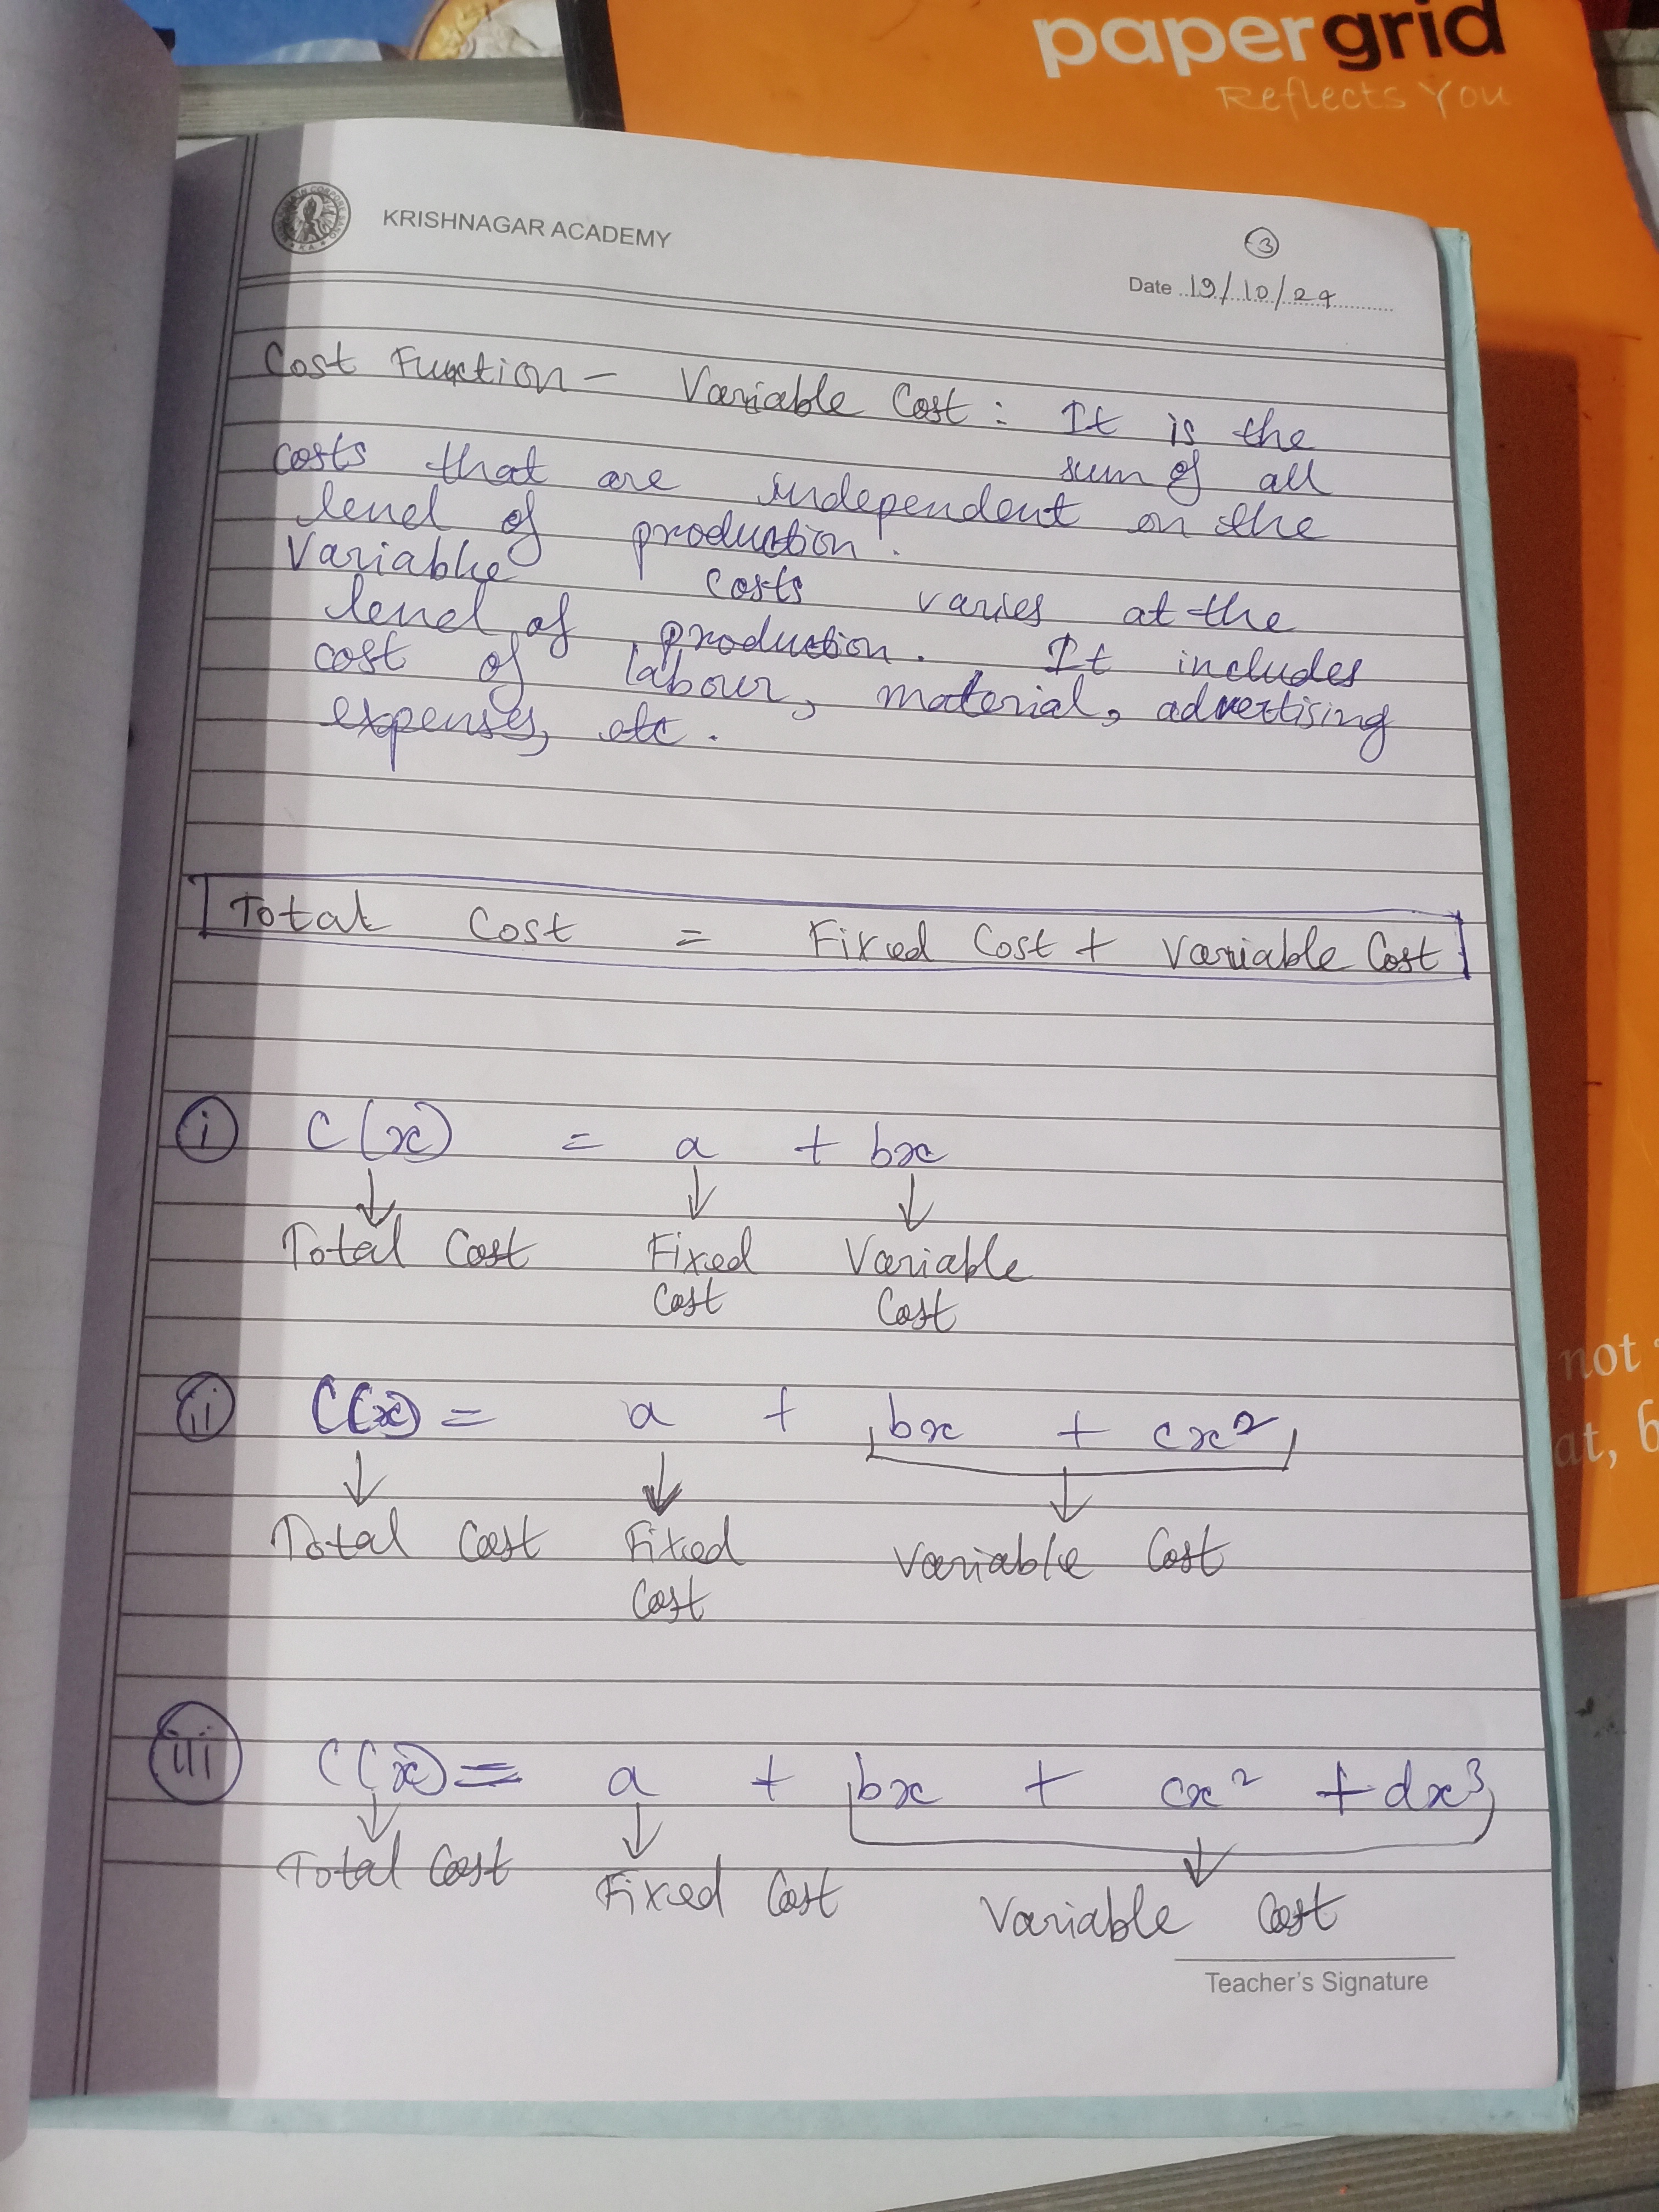 papergrid
Reflects You
KRISHNAGAR ACADEMY
3
Date 19/10/24
Cost Function - Variable Cost: It is the
sum of all
costs that are independent on the
level of production.
Variable costs varies at the
level of production. It includes
cost of labour, material, advertising
expenses, etc.
Total Cost = Fixed Cost + Variable Cost
i C(x) = a + bx
Total Cost Fixed Variable
Cost Cost
ii C(x) = a + bx + cx²
Total Cost Fixed Variable Cost
Cost
iii C(x) = a + bx + cx² + dx³
Total Cost Fixed Cost Variable Cost
Teacher's Signature
not
at, b